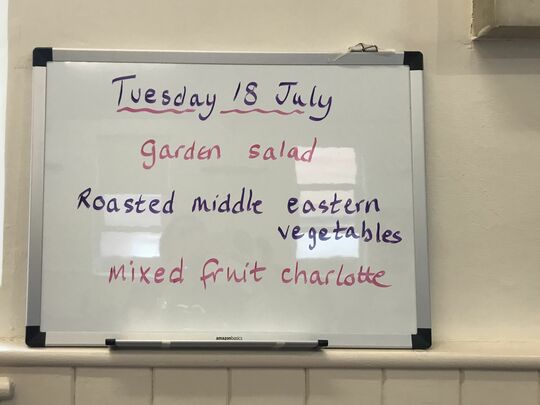 Tuesday 18 July
garden salad
Roasted middle eastern
vegetables
mixed fruit charlotte
amazonbasics